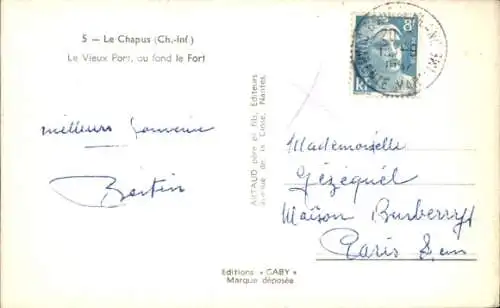 5 — Le Chapus (Ch.-Inf.)
Le Vieux Port, au fond le Fort
meilleurs souvenirs
Bertin
ARTAUD père et fils, Editeurs
avenue de la Close, Nantes.
8F
RF
Mademoiselle
Gézéquel
Maison Burberrys
Paris 8em
Editions « GABY »
Marque déposée